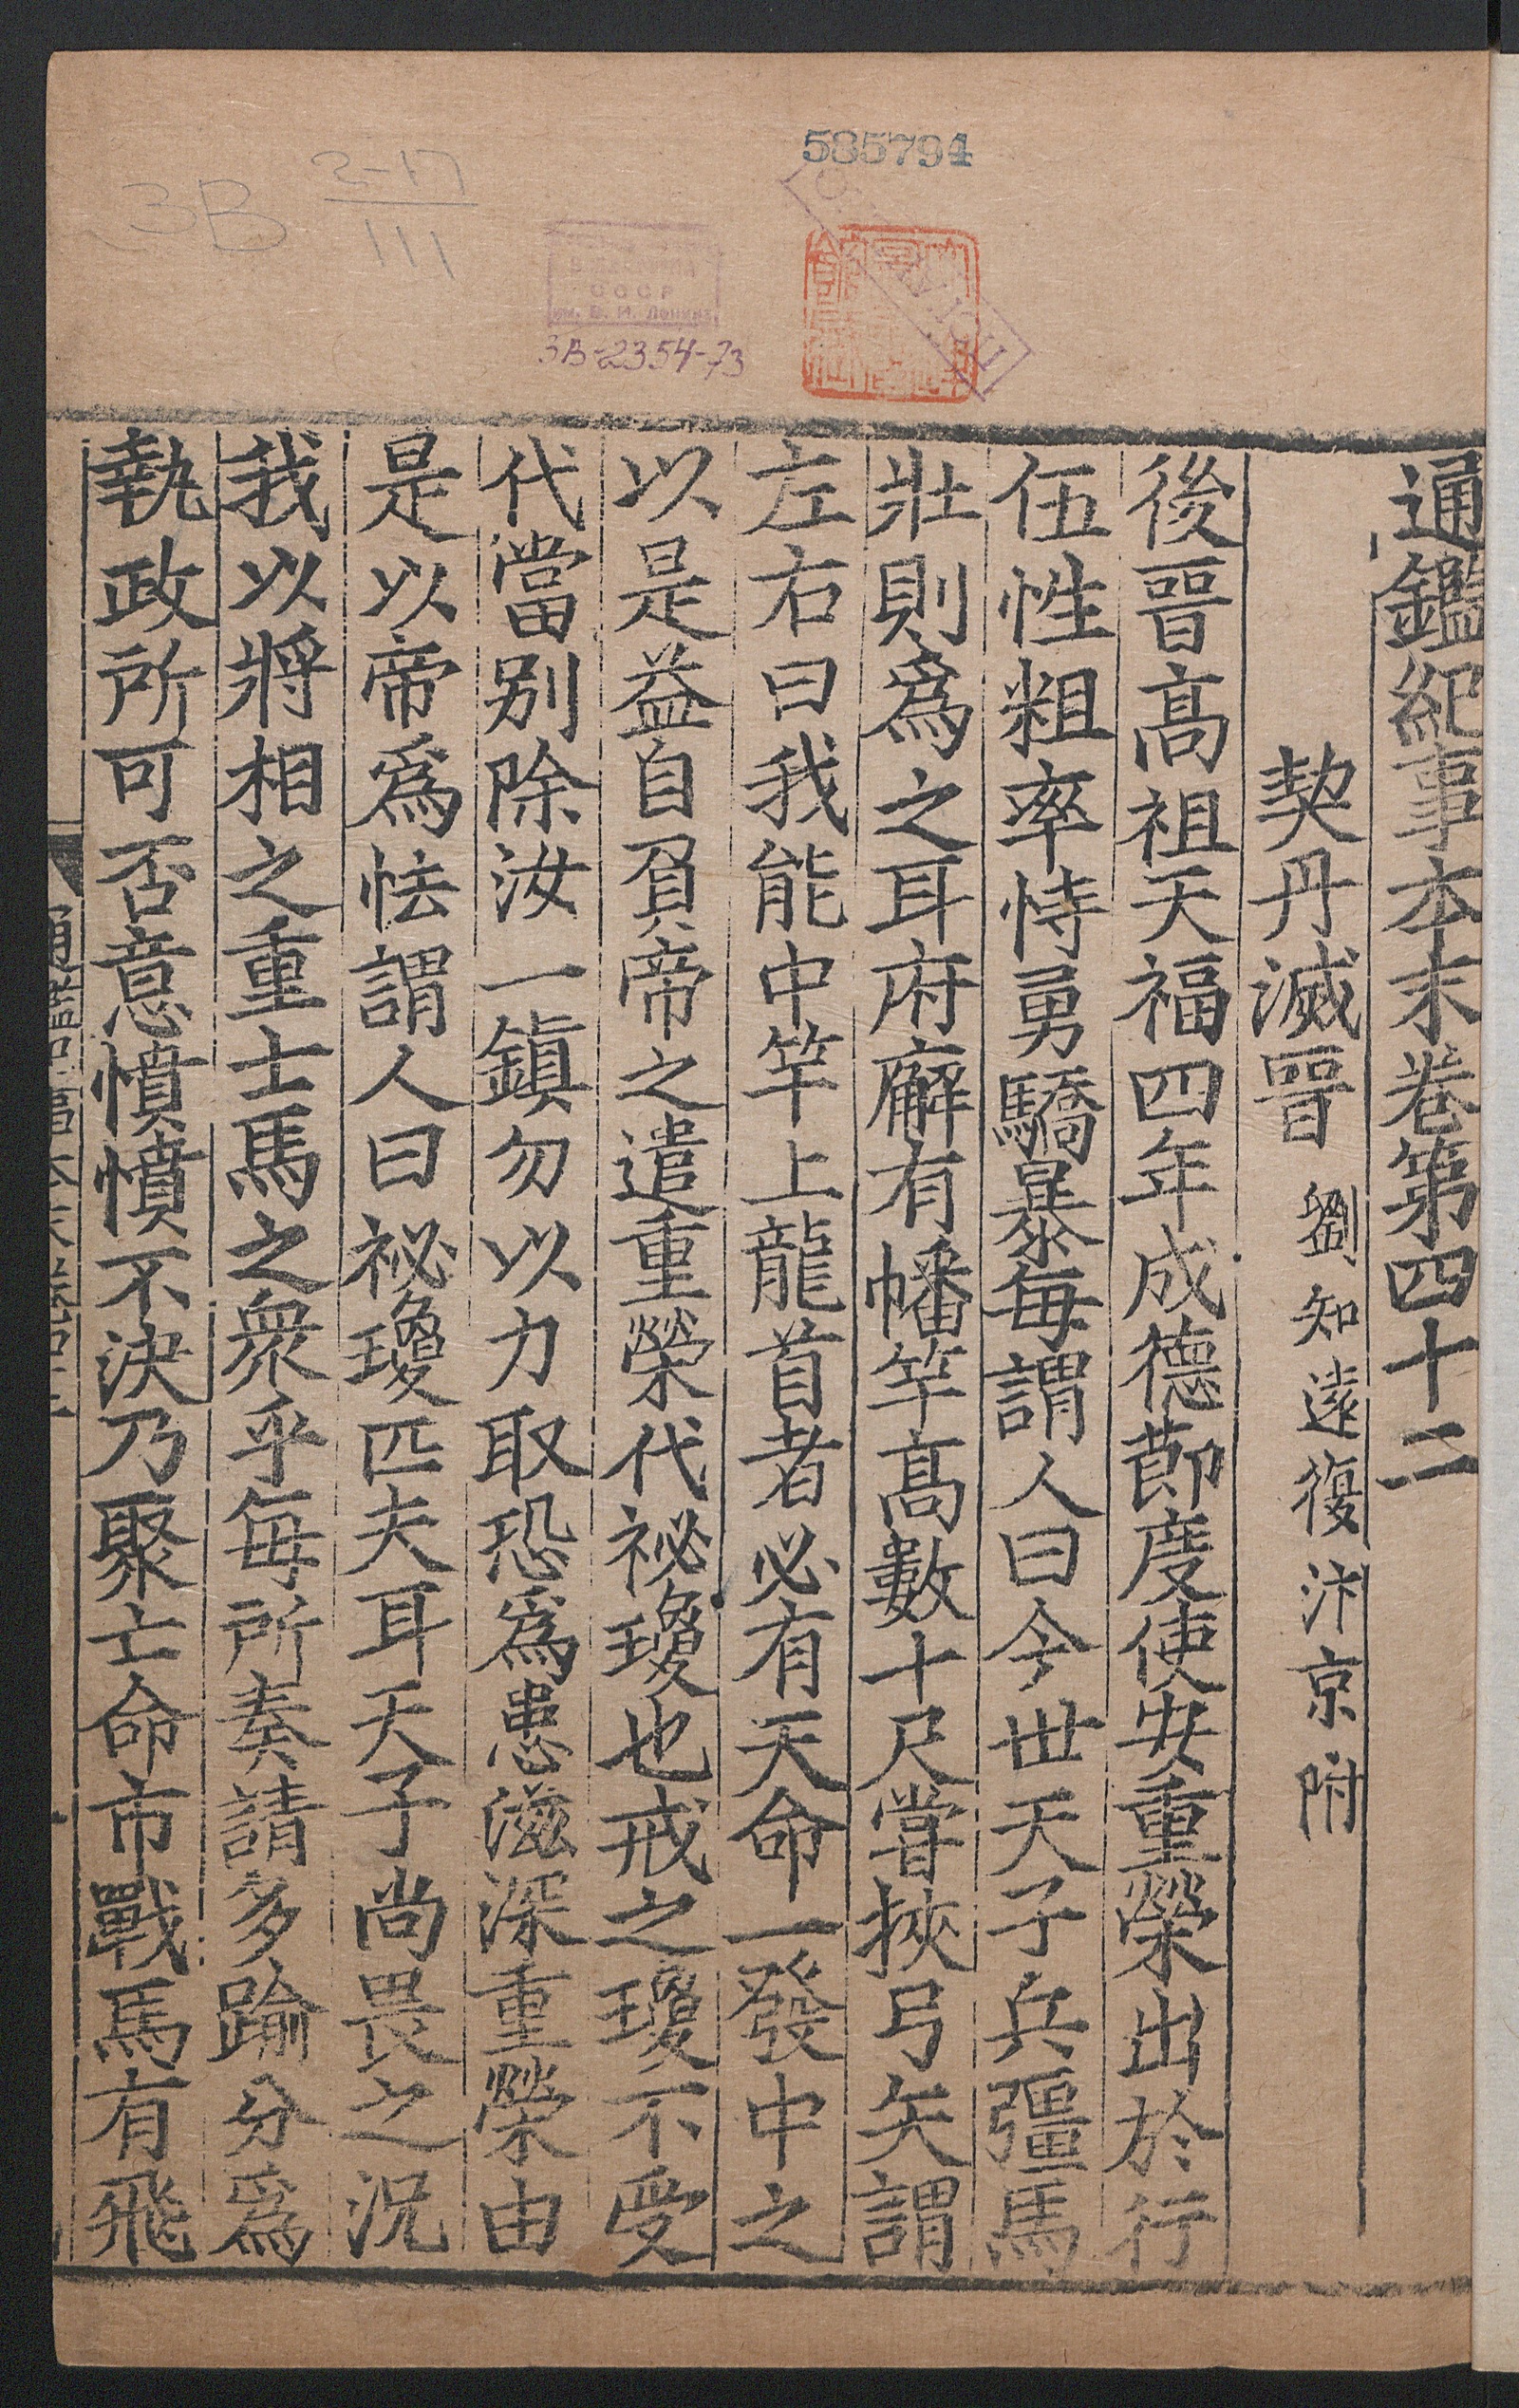 585794
3B 2-17
111
СССР
им. В. И. Ленина
3В-2354-73
通鑑紀事本末卷第四十二
契丹滅晉 劉知遠復汴京附
後晉高祖天福四年成德節度使安重榮出於行
伍性粗率恃勇驕暴每謂人曰今世天子兵彊馬
壯則爲之耳府廨有幡竿高數十尺嘗挾弓矢謂
左右曰我能中竿上龍首者必有天命一發中之
以是益自負帝之遣重榮代祕瓊也戒之瓊不受
代當別除汝一鎮勿以力取恐爲患滋深重榮由
是以帝爲怯謂人曰祕瓊匹夫耳天子尚畏之況
我以將相之重士馬之衆乎每所奏請多踰分爲
執政所可否意憤憤不決乃聚亡命市戰馬有飛